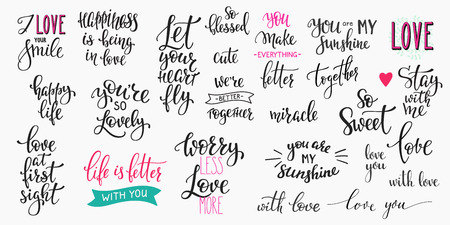 I LOVE
your
smile
happiness
is being
in love
Let
your
heart
fly
so
blessed
cute
we're
BETTER
TOGETHER
you
make
EVERYTHING
better
you are MY
Sunshine
together
LOVE
happy
life
you're
SO
Lovely
miracle
So
Sweet
Stay
with
me
love
at
first
sight
life is better
WITH YOU
worry
LESS
Love
MORE
you are
MY
Sunshine
love
you
love
with love
with love
love you